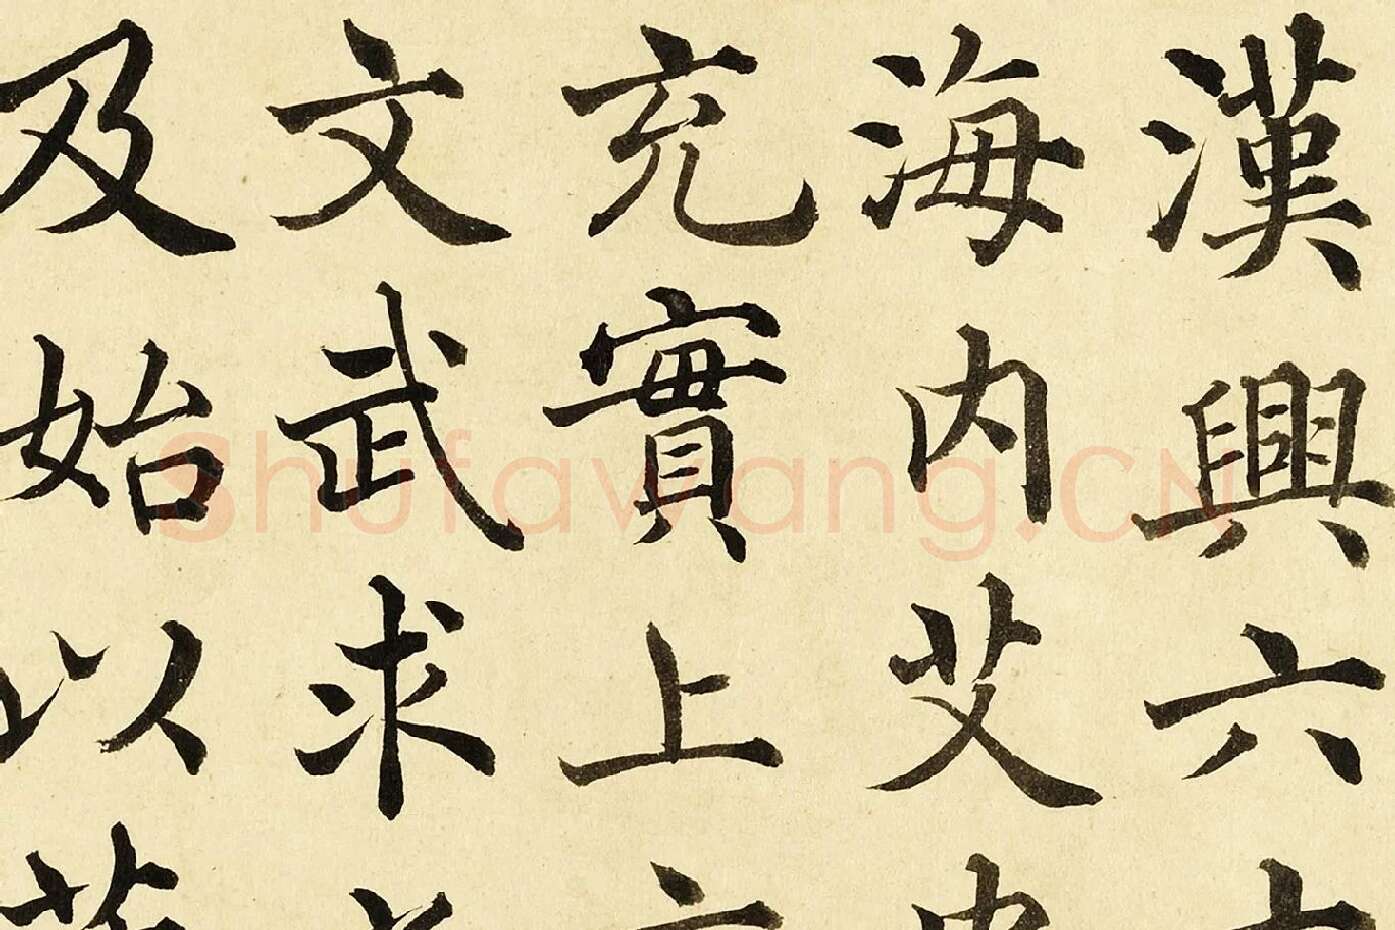 漢興六
海内艾
充實上
文武求
及始以
Shufawang.CN